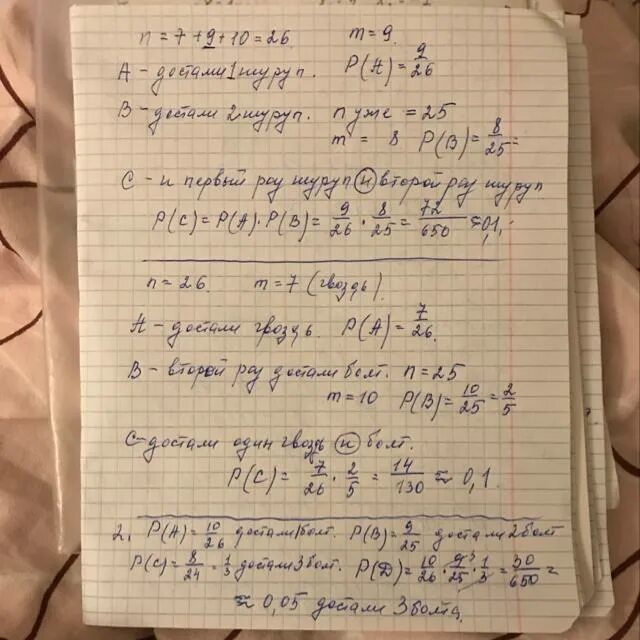 n = 7 + 9 + 10 = 26. m = 9.
A - достали 1 шуруп. P(A) = 9/26
B - достали 2 шуруп. n уже = 25
m = 8 P(B) = 8/25 =
C - и первый раз шуруп и второй раз шуруп
P(C) = P(A) · P(B) = 9/26 · 8/25 = 72/650 ≈ 0,1.
n = 26. m = 7 (гвоздь).
A - достали гвоздь. P(A) = 7/26.
B - второй раз достали болт. n = 25
m = 10 P(B) = 10/25 = 2/5
C - достали один гвоздь и болт.
P(C) = 7/26 · 2/5 = 14/130 ≈ 0,1.
2. P(A) = 10/26 достали 1 болт. P(B) = 9/25 достали 2 болт
P(C) = 8/24 = 1/3 достали 3 болт. P(D) = 10/26 · 9³/25 · 1/3 = 30/650 =
≈ 0,05 достали 3 болта.